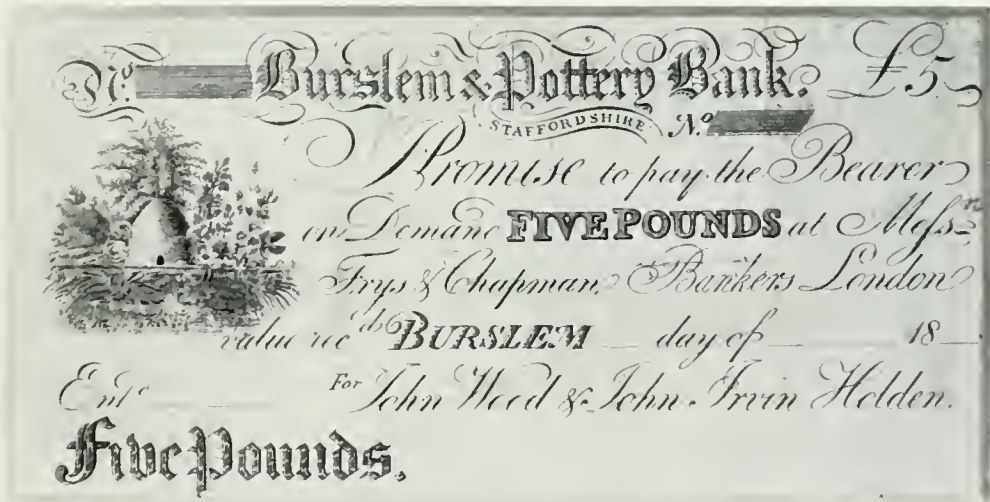 No. Burslem & Pottery Bank. £5
STAFFORDSHIRE No.
I Promise to pay the Bearer
on Demand FIVE POUNDS at Mefsrs
Frys & Chapman, Bankers London
value recd. BURSLEM day of 18
Entd.
For John Wood & John Irvin Holden.
Five Pounds.